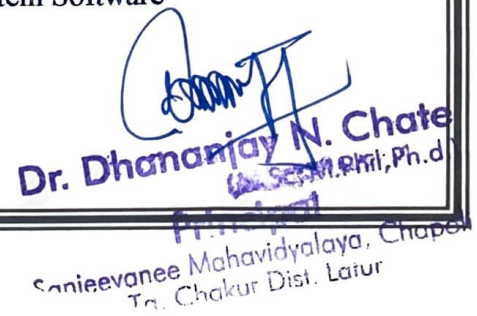 Software
Dr. Dhananjay N. Chate
M.Phil;Ph.d
Principal
Sanjeevanee Mahavidyalaya, Chapoli
Tq. Chakur Dist. Latur